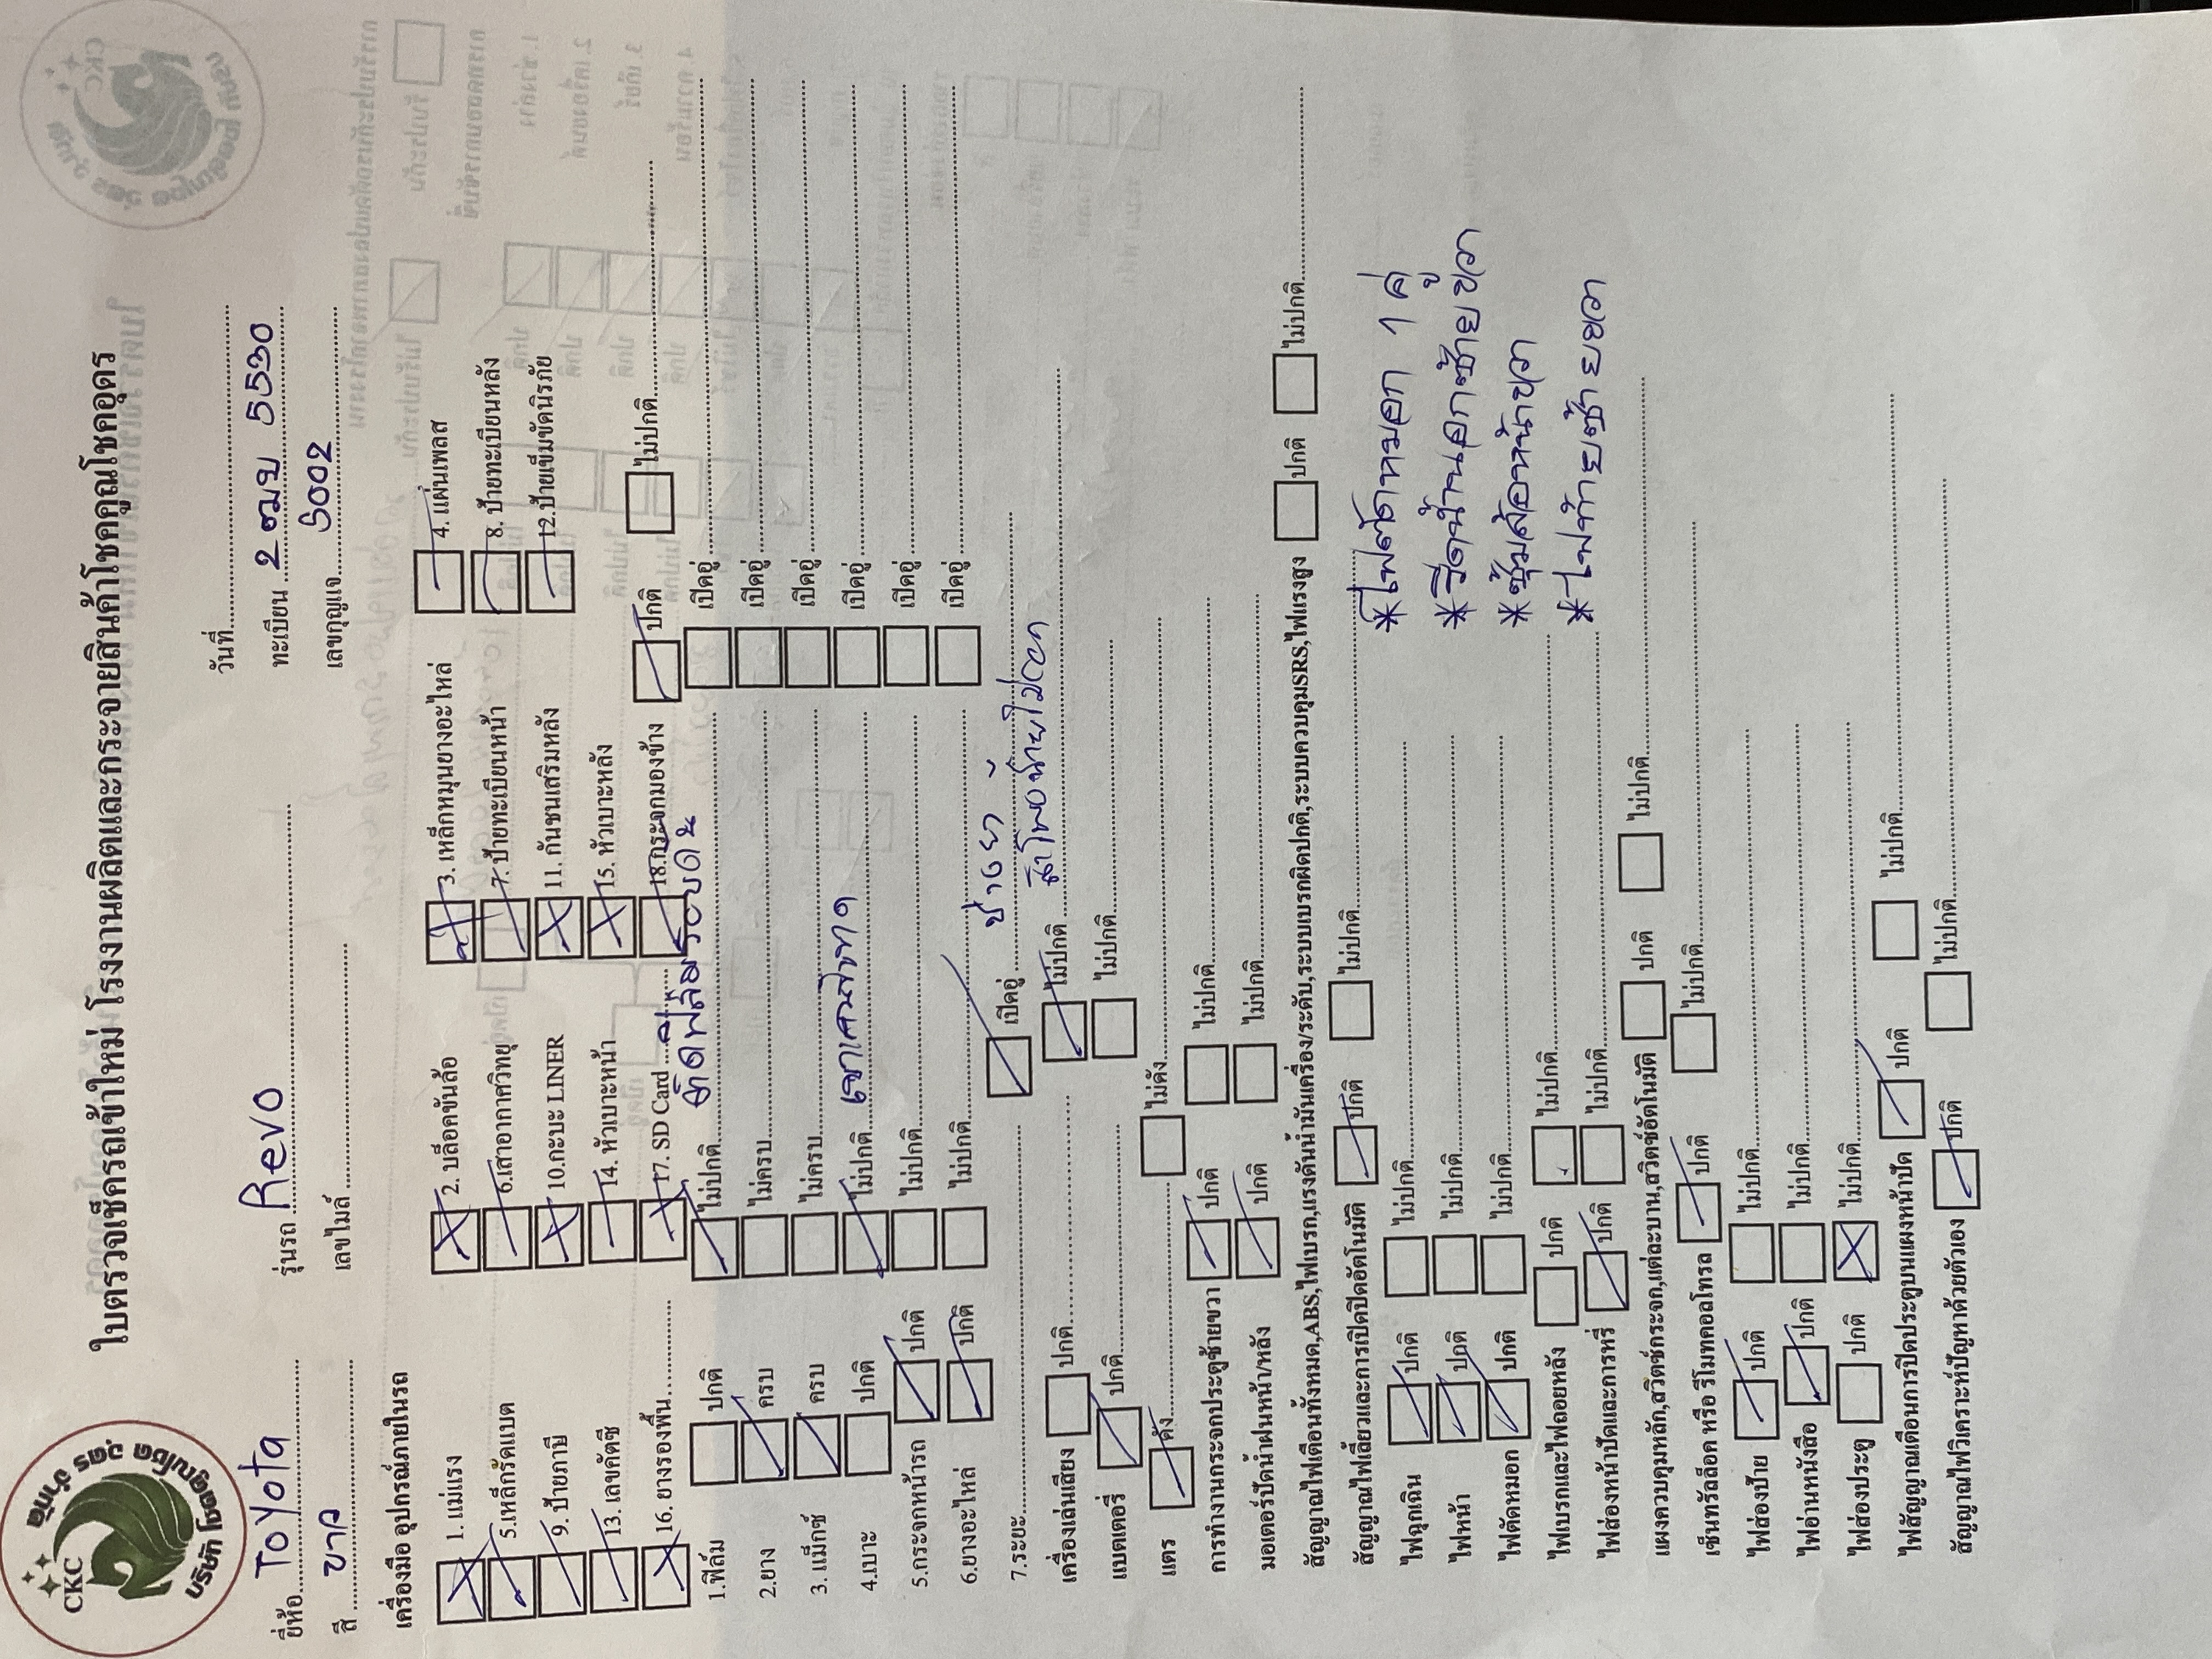 ใบตรวจเช็ครถเข้าใหม่ โรงงานผลิตและกระจายสินค้าโชคคูณโชคอุดร
CKC
บริษัท โชคคูณโชค อุดร จำกัด
วันที่
ยี่ห้อ Toyota รุ่นรถ Revo ทะเบียน 2ฒบ 5530
สี ขาว เลขไมล์ เลขกุญแจ
เครื่องมือ อุปกรณ์ภายในรถ
1. แม่แรง 2. บล็อคขันล้อ 3. เหล็กหมุนยางอะไหล่ 4. แผ่นเพลส
5.เหล็กรัดแบต 6.เสาอากาศวิทยุ 7. ป้ายทะเบียนหน้า 8. ป้ายทะเบียนหลัง
9. ป้ายภาษี 10.กะบะ LINER 11. กันชนเสริมหลัง 12.ป้ายเข็มขัดนิรภัย
13. เลขคัตซี 14. หัวเบาะหน้า 15. หัวเบาะหลัง
16. ยางรองพื้น 17. SD Card 18.กระจกมองข้าง ปกติ ไม่ปกติ
1.ฟิล์ม ปกติ ไม่ปกติ เปิดอู่
2.ยาง ครบ ไม่ครบ เปิดอู่
3. แม็กซ์ ครบ ไม่ครบ เปิดอู่
4.เบาะ ปกติ ไม่ปกติ เปิดอู่
5.กระจกหน้ารถ ปกติ ไม่ปกติ เปิดอู่
6.ยางอะไหล่ ปกติ ไม่ปกติ เปิดอู่
7.ระยะ เปิดอู่
เครื่องเล่นเสียง ปกติ ไม่ปกติ
แบตเตอรี่ ปกติ ไม่ปกติ
แตร ดัง ไม่ดัง
การทำงานกระจกประตูซ้ายขวา ปกติ ไม่ปกติ
มอเตอร์ปัดน้ำฝนหน้า/หลัง ปกติ ไม่ปกติ
สัญญาณไฟเตือนทั้งหมด,ABS,ไฟเบรก,แรงดันน้ำมันเครื่อง/ระดับ,ระบบเบรกผิดปกติ,ระบบควบคุมSRS,ไฟแรงสูง ปกติ ไม่ปกติ
สัญญาณไฟเลี้ยวและการเปิดปิดอัตโนมัติ ปกติ ไม่ปกติ
ไฟฉุกเฉิน ปกติ ไม่ปกติ *ไฟตัดหมอก 1 คู่
ไฟหน้า ปกติ ไม่ปกติ
ไฟตัดหมอก ปกติ ไม่ปกติ *ซุ้มล้อหน้าขวา
ไฟเบรกและไฟถอยหลัง ปกติ ไม่ปกติ *ไฟท้ายซ้ายขวา
ไฟส่องหน้าปัดและการหรี่ ปกติ ไม่ปกติ
แผงควบคุมหลัก,สวิตซ์กระจก,แต่ละบาน,สวิตช์อัตโนมัติ ปกติ ไม่ปกติ
เซ็นทรัลล็อค หรือ รีโมทคอลโทรล ปกติ ไม่ปกติ
ไฟส่องป้าย ปกติ ไม่ปกติ
ไฟอ่านหนังสือ ปกติ ไม่ปกติ
ไฟส่องประตู ปกติ ไม่ปกติ
ไฟสัญญาณเตือนการปิดประตูบนแผงหน้าปัด ปกติ ไม่ปกติ
สัญญาณไฟวิเคราะห์ปัญหาด้วยตัวเอง ปกติ ไม่ปกติ